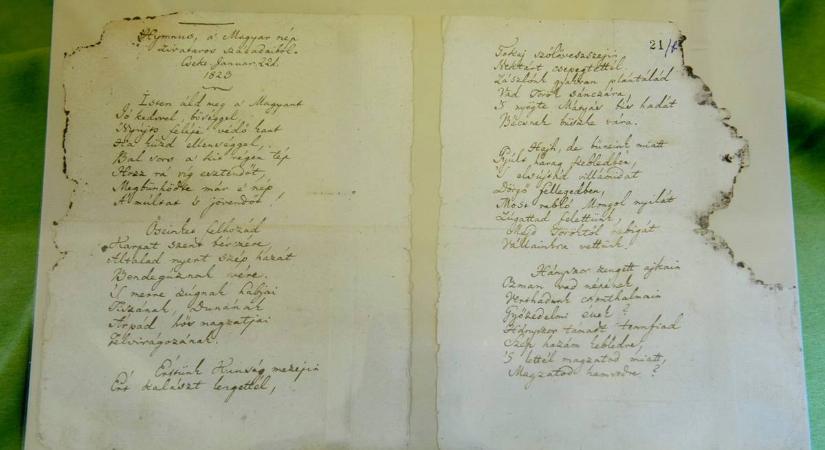 Hymnus, a' Magyar nép
zivataros századaiból.
Cseke Januar. 22d.
1823
Isten áldd meg a' Magyart
Jó kedvvel, bőséggel,
Nyujts feléje védő kart
Ha küzd ellenséggel,
Bal sors a' kit régen tép
Hozz rá víg esztendőt,
Megbűnhődte már e' nép
A' múltat 's jövendőt!
Őseinket felhozád
Kárpát szent bérczére,
Általad nyert szép hazát
Bendegúznak vére.
'S merre zúgnak habjai
Tiszának, Dunának
Árpád hős magzatjai
Felvirágozának.
Értünk Kunság mezején
Ért kalászt lengettél,
21/
Tokaj szőlővesszein
Nektárt csepegtettél.
Zászlónk gyakran plántálád
Vad Török sánczára,
'S nyögte Mátyás bús hadát
Bécsnek büszke vára.
Hajh, de bűneink miatt
Gyúlt harag kebledben,
'S elsújtád villámidat
Dörgő fellegedben,
Most rabló Mongol nyilát
Zúgattad felettünk,
Majd Töröktől rabigát
Vállainkra vettünk.
Hányszor zengett ajkain
Ozman vad népének
Vert hadunk csonthalmain
Győzedelmi ének?
Hányszor támadt tenn fiad
Szép hazám kebledre,
'S lettél magzatod miatt,
Magzatod hamvvedre?